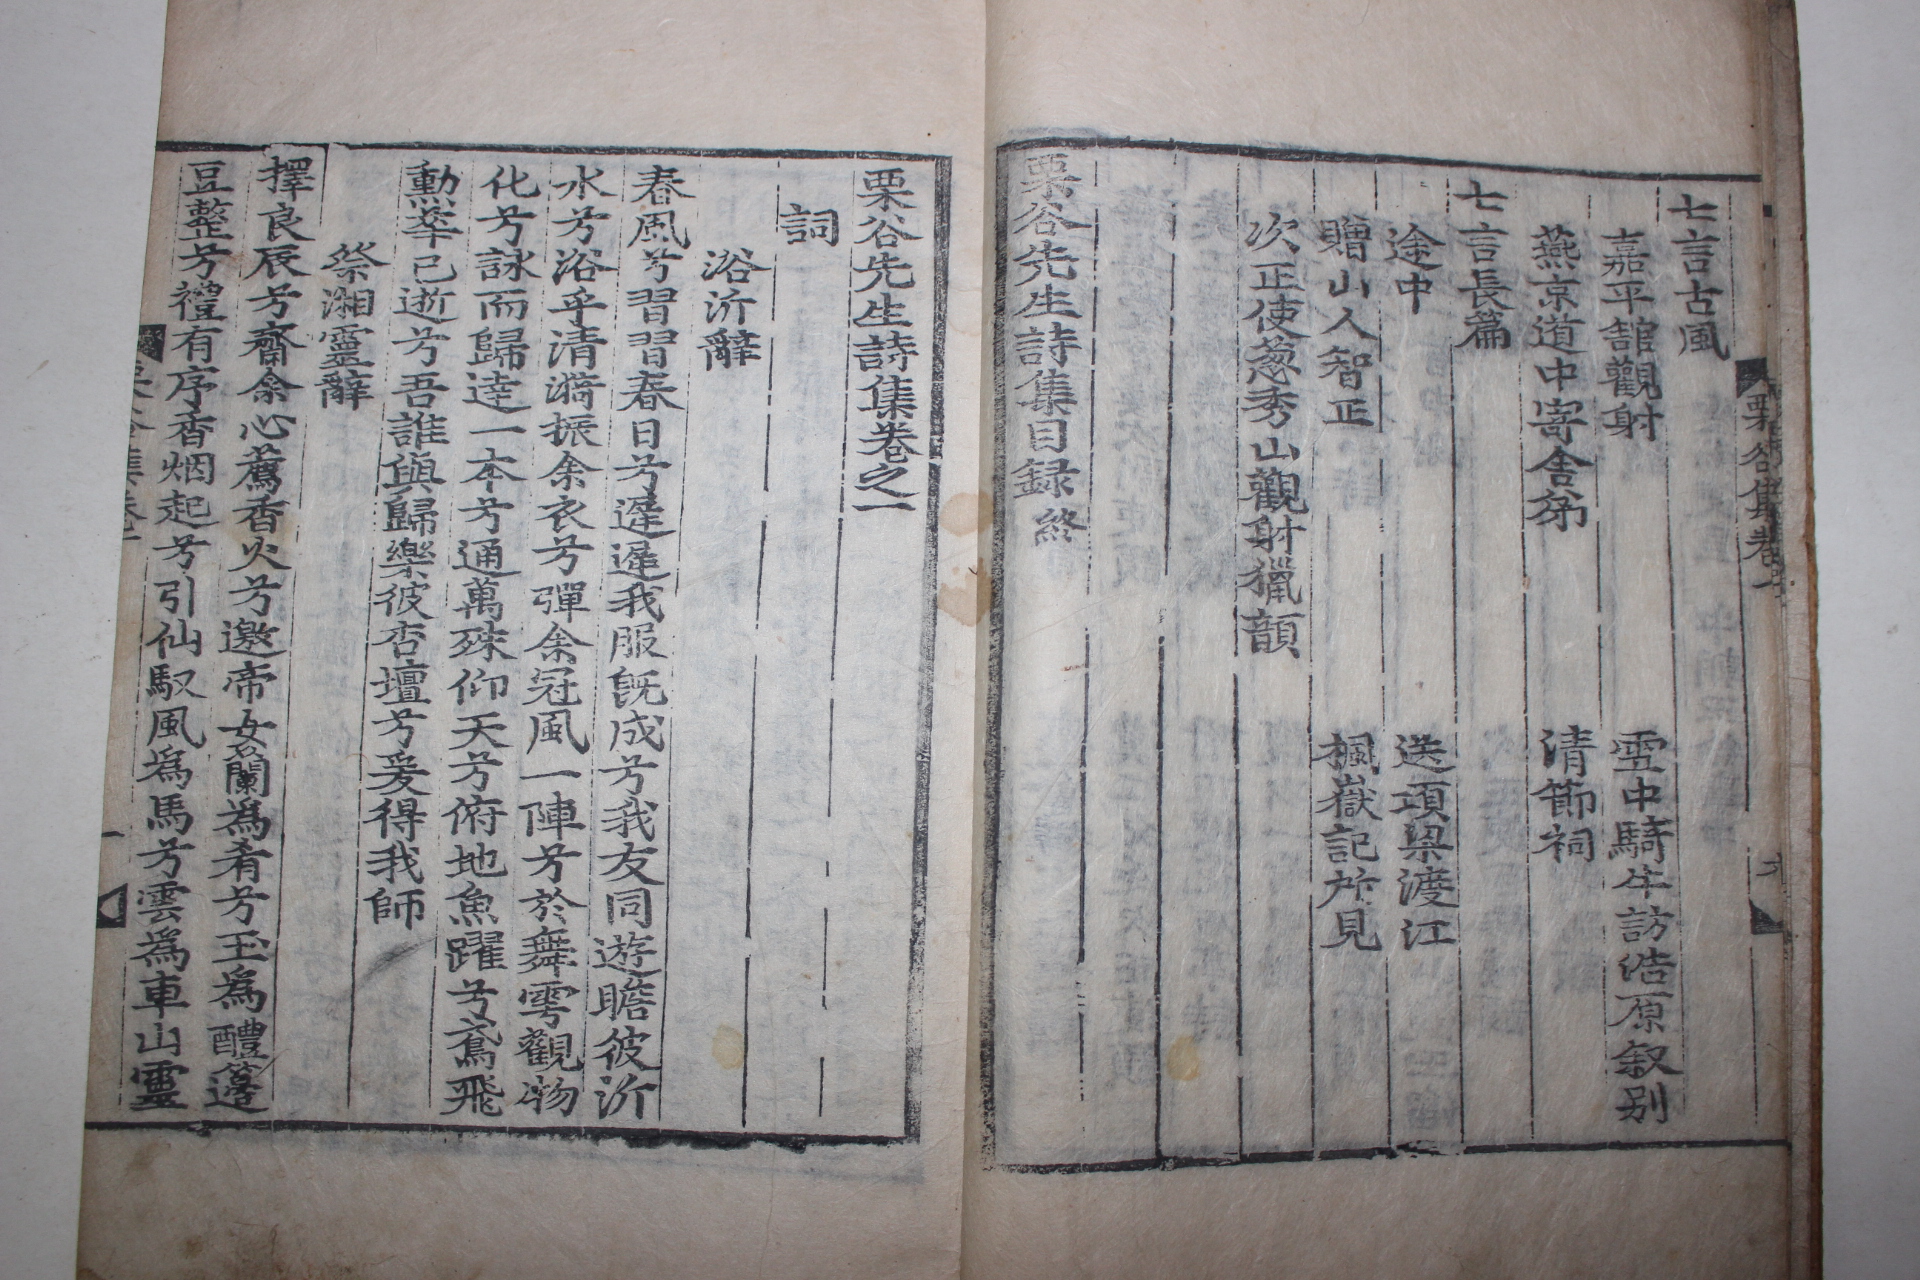 七言古風
嘉平舘觀射　雪中騎牛訪浩原叙别
燕京道中寄舍弟　清節祠
七言長篇
途中　送項梁渡江
贈山人智正　楓嶽記所見
次正使葱秀山觀射獵韻
栗谷先生詩集目録 終
栗谷集卷一
栗谷先生詩集卷之一
詞
浴沂辭
春風兮習習春日兮遲遲我服旣成兮我友同遊瞻彼沂
水兮浴乎清漪振余衣兮彈余冠風一陣兮於舞雩觀物
化兮詠而歸達一本兮通萬殊仰天兮俯地魚躍兮鳶飛
勳華已逝兮吾誰與歸樂彼杏壇兮爰得我師
祭湘靈辭
擇良辰兮齋余心薦香火兮邀帝女蘭為肴兮玉為醴籩
豆整兮禮有序香烟起兮引仙馭風為馬兮雲為車山靈
一